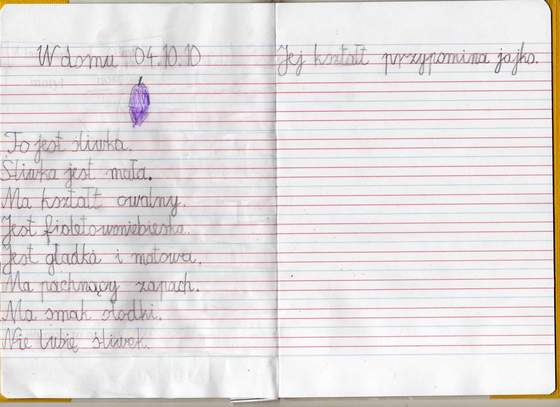 W domu 04.10.10
To jest śliwka.
Śliwka jest mała.
Ma kształt owalny.
Jest fioletowoniebieska.
Jest gładka i matowa.
Ma pachnący zapach.
Ma smak słodki.
Nie lubię śliwek.
Jej kształt przypomina jajko.